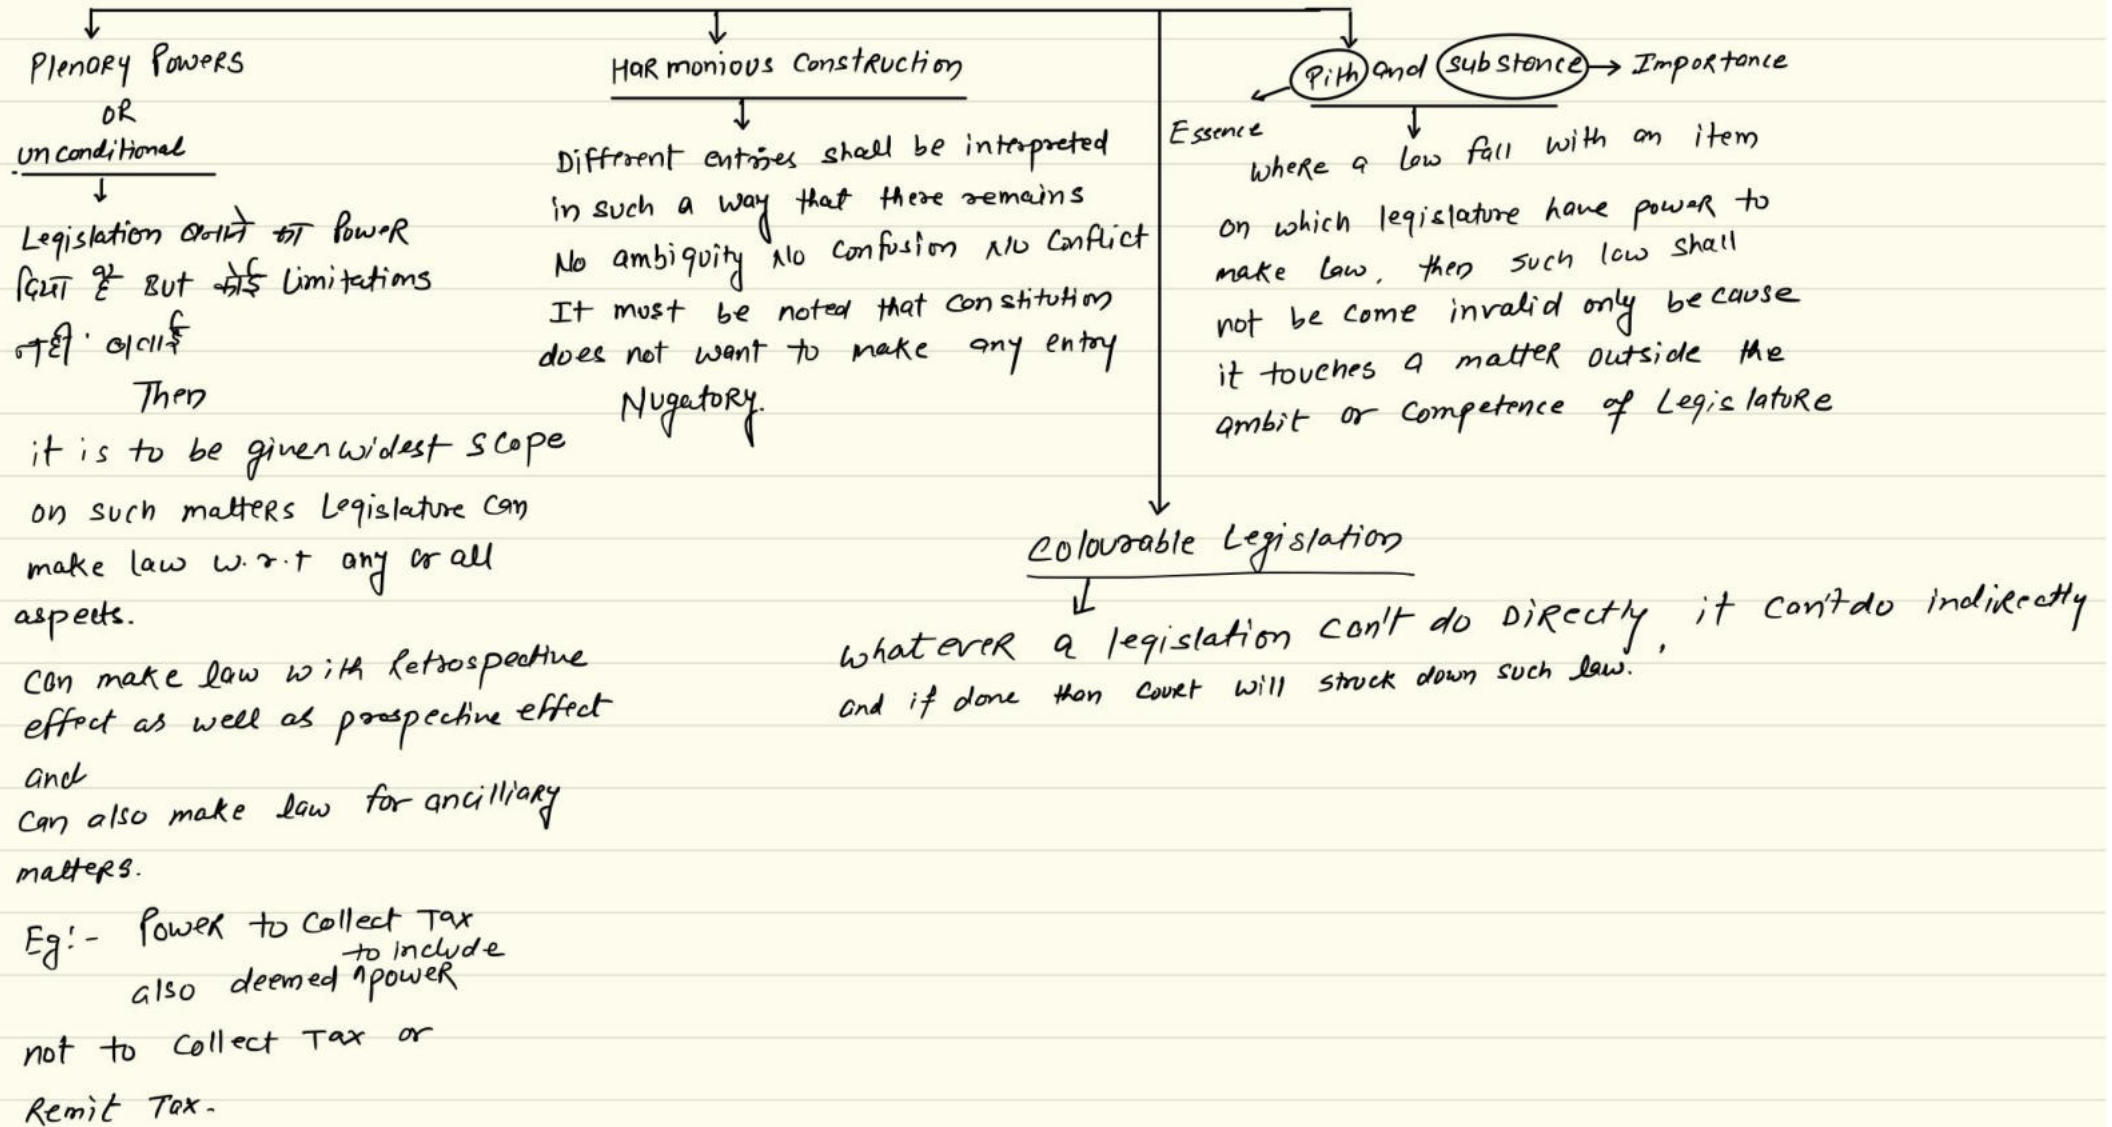 Plenary Powers
OR
unconditional
Legislation बनाने का Power
दिया है But कोई Limitations
नही बताई
Then
it is to be given widest scope
on such matters Legislature can
make law w.r.t any or all
aspects.
can make law with Retrospective
effect as well as prospective effect
and
can also make law for ancilliary
matters.
Eg:- Power to collect Tax
to include
also deemed ^power
not to collect Tax or
Remit Tax.
Harmonious Construction
Different entries shall be interpreted
in such a way that there remains
No ambiguity No confusion No Conflict
It must be noted that constitution
does not want to make any entry
Nugatory.
Pith and substance → Importance
Essence
where a law fall with an item
on which legislature have power to
make law, then such law shall
not be come invalid only because
it touches a matter outside the
ambit or competence of Legislature
Colourable Legislation
whatever a legislation can't do Directly, it can't do indirectly
and if done then court will struck down such law.